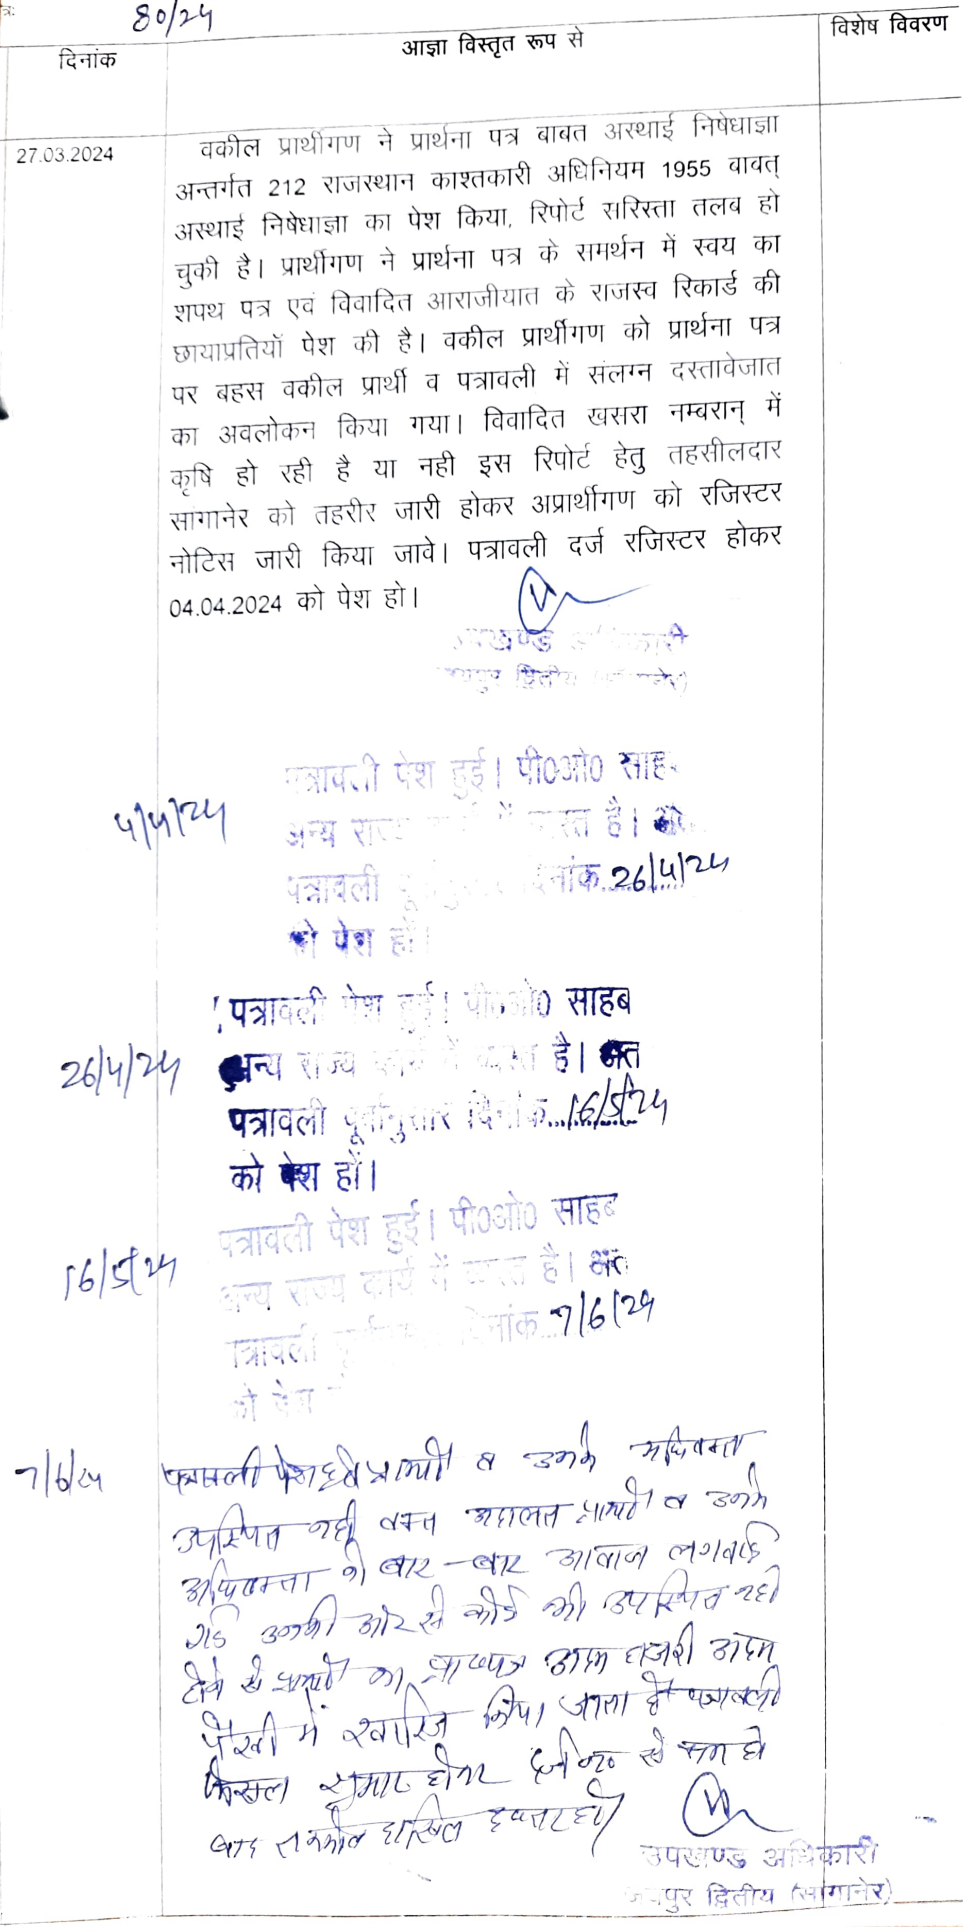 त्र:
80/24
दिनांक
आज्ञा विस्तृत रूप से
विशेष विवरण
27.03.2024
वकील प्रार्थीगण ने प्रार्थना पत्र बाबत अस्थाई निषेधाज्ञा
अन्तर्गत 212 राजस्थान काश्तकारी अधिनियम 1955 बावत्
अस्थाई निषेधाज्ञा का पेश किया, रिपोर्ट सरिस्ता तलब हो
चुकी है। प्रार्थीगण ने प्रार्थना पत्र के समर्थन में स्वय का
शपथ पत्र एवं विवादित आराजीयात के राजस्व रिकार्ड की
छायाप्रतियॉ पेश की है। वकील प्रार्थीगण को प्रार्थना पत्र
पर बहस वकील प्रार्थी व पत्रावली में संलग्न दस्तावेजात
का अवलोकन किया गया। विवादित खसरा नम्बरान् में
कृषि हो रही है या नही इस रिपोर्ट हेतु तहसीलदार
सांगानेर को तहरीर जारी होकर अप्रार्थीगण को रजिस्टर
नोटिस जारी किया जावे। पत्रावली दर्ज रजिस्टर होकर
04.04.2024 को पेश हो।
उपखण्ड अधिकारी
जयपुर द्वितीय (सांगानेर)
4/4/24
पत्रावली पेश हुई। पी0ओ0 साहब
अन्य राज्य में व्यस्त है।
पत्रावली दिनांक 26/4/24
को पेश हों।
26/4/24
पत्रावली पेश हुई। पी0ओ0 साहब
अन्य राज्य कार्य में व्यस्त है। अत
पत्रावली पूर्वानुसार दिनांक 16/5/24
को पेश हों।
16/5/24
पत्रावली पेश हुई। पी0ओ0 साहब
अन्य राज्य कार्य में व्यस्त है। अत
पत्रावली दिनांक 7/6/24
को पेश
7/6/24
पत्रावली पेश हुई प्रार्थी व उनके अधिवक्ता
उपस्थित नहीं वक्त अदालत प्रार्थी व उनके
अधिवक्ता को बार-बार आवाज लगवाई
गई उनकी ओर से कोई भी उपस्थित नही
होने से प्रार्थी का प्रा०पत्र अदम हाजरी अदम
पैरवी में खारिज किया जाता है पत्रावली
फैसल शुमार होकर से कम हो
बाद तकमील दाखिल दफ्तर हो।
उपखण्ड अधिकारी
जयपुर द्वितीय (सांगानेर)